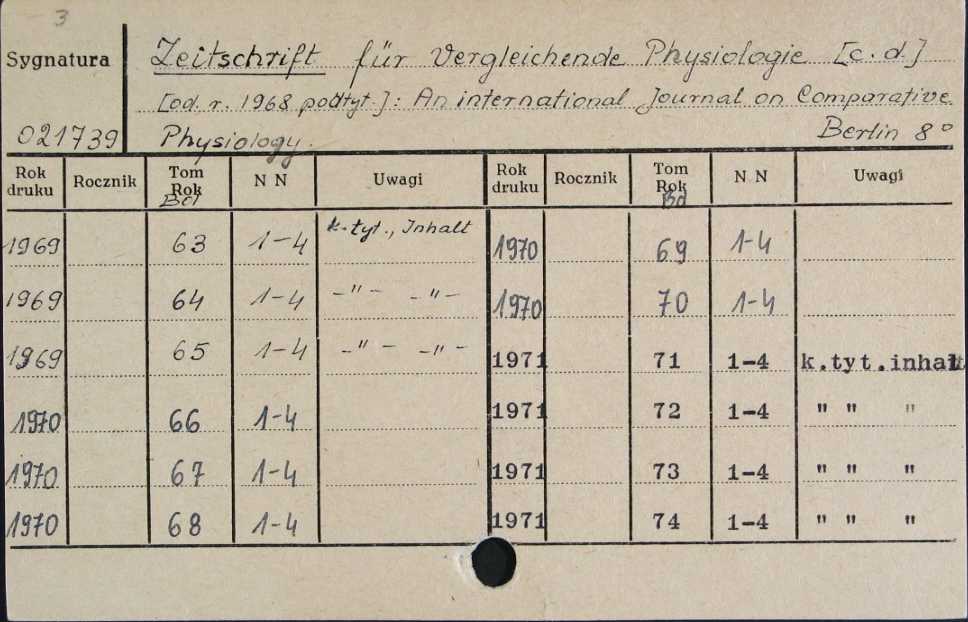 3
Sygnatura
021739
Zeitschrift für Vergleichende Physiologie [c.d.]
[od. r. 1968 podtyt.]: An international Journal on Comparative
Physiology.
Berlin 8°
Rok druku Rocznik Tom Rok Bd N N Uwagi Rok druku Rocznik Tom Rok Bd N N Uwagi
1969 63 1-4 k.tyt., Inhalt 1970 69 1-4
1969 64 1-4 -"- -"- 1970 70 1-4
1969 65 1-4 -"- -"- 1971 71 1-4 k.tyt.inhalt
1970 66 1-4 1971 72 1-4 " " "
1970 67 1-4 1971 73 1-4 " " "
1970 68 1-4 1971 74 1-4 " " "